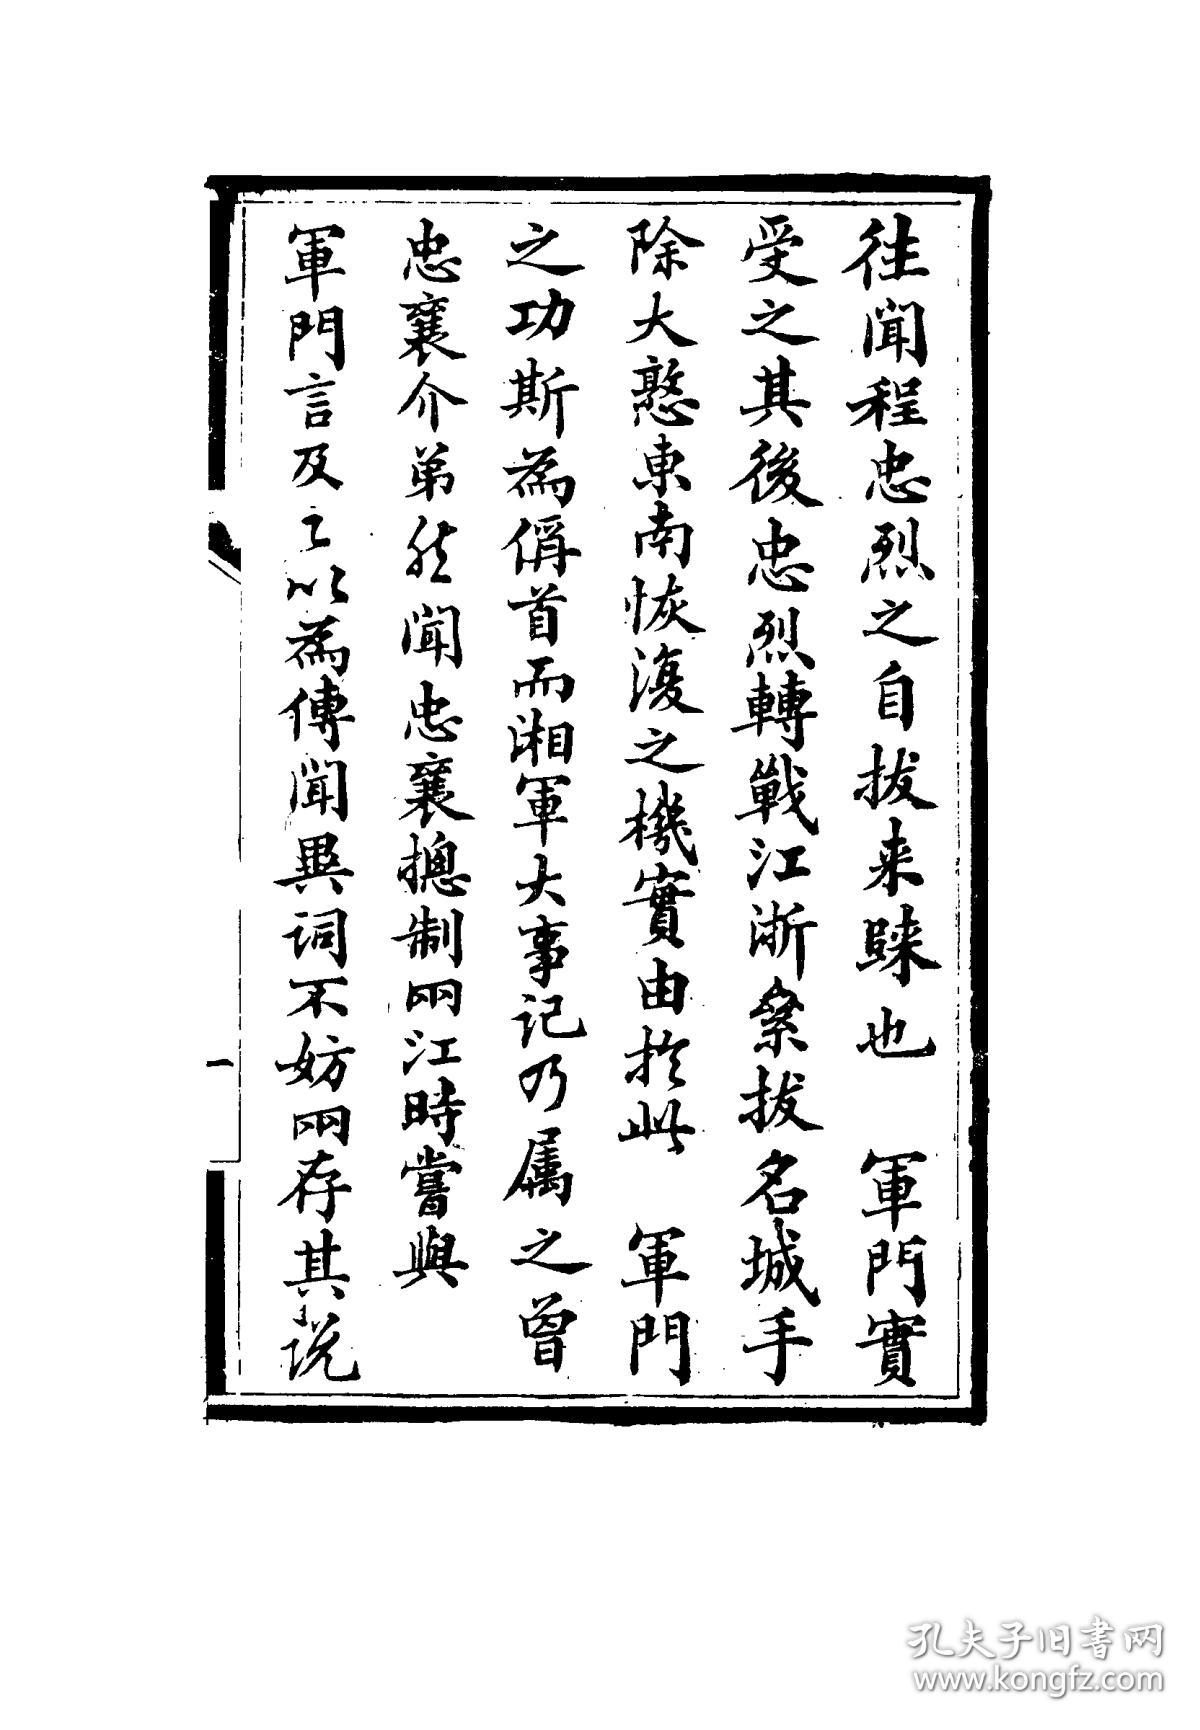 往聞程忠烈之自拔来歸也　軍門實
受之其後忠烈轉戰江浙桑拔名城手
除大憝東南恢復之機實由於此　軍門
之功斯為偁首而湘軍大事記乃屬之曾
忠襄介弟然聞忠襄摠制兩江時嘗與
軍門言及之以為傳聞異詞不妨兩存其説
一
孔夫子旧書网
www.kongfz.com